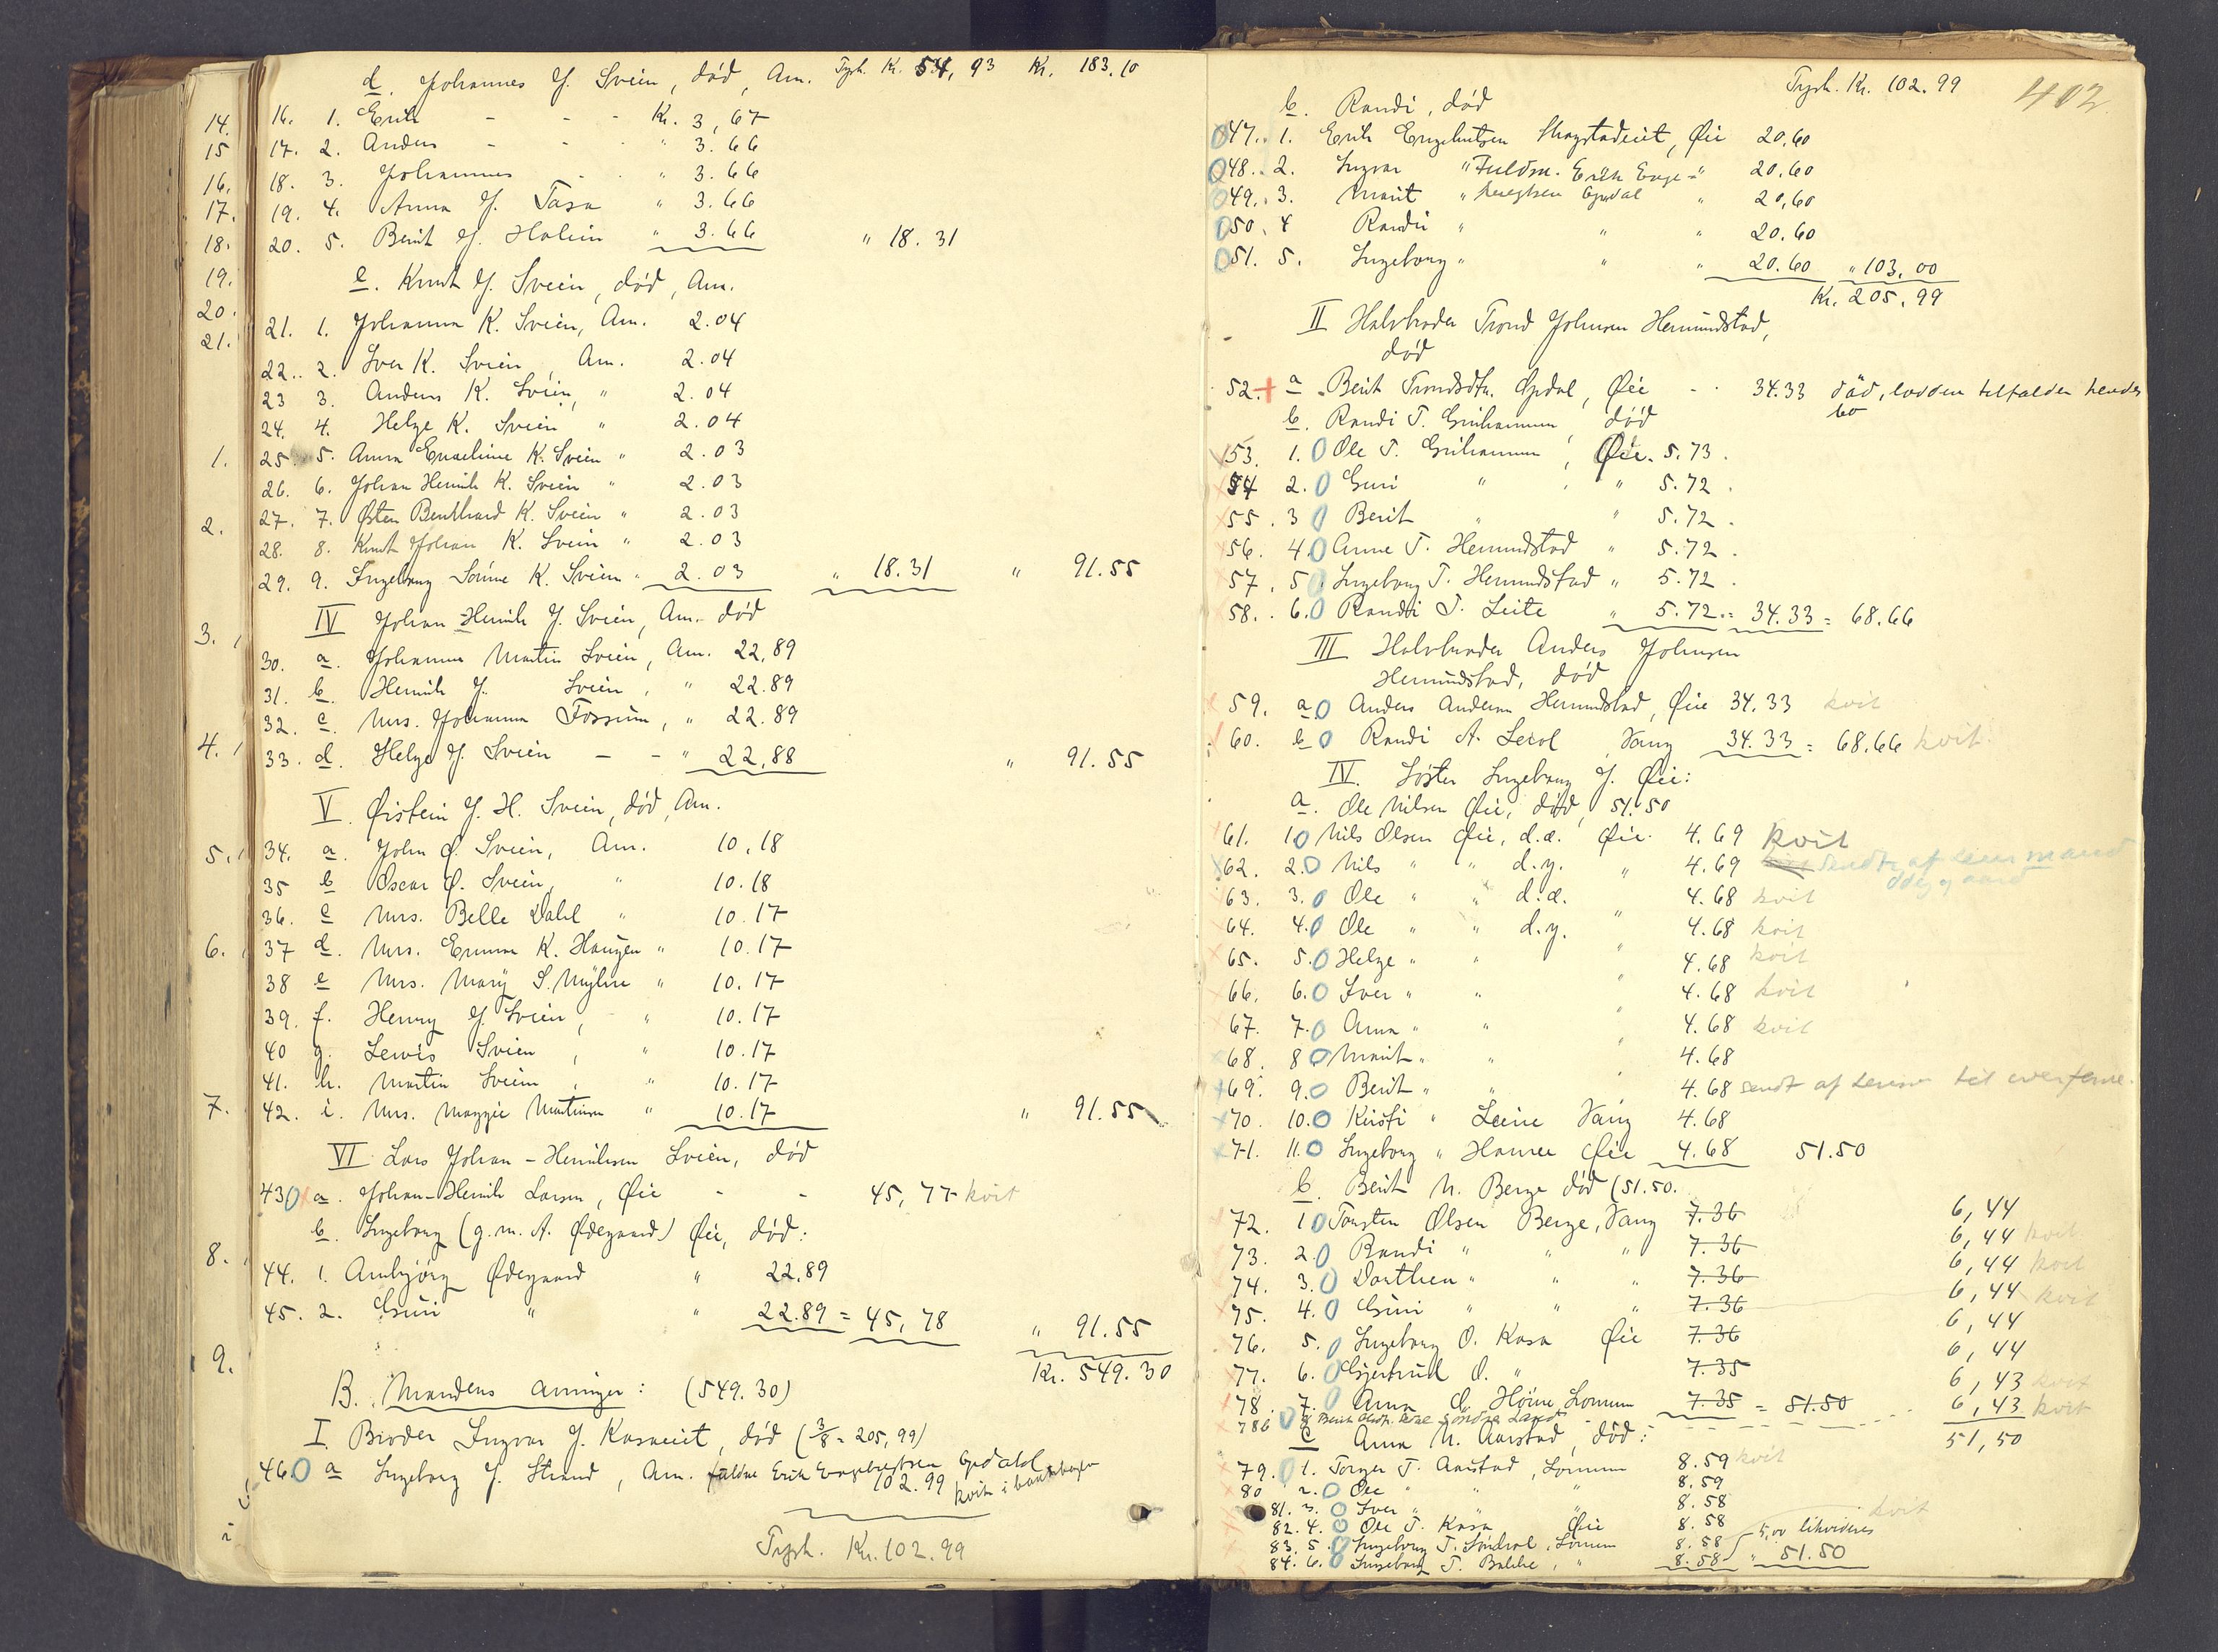 d. Johannes J. Svien, død, Am. Trsp. Kr. 54,93 Kr. 183.10
14. 16. 1. Erik - - - Kr. 3,67
15 17. 2. Anders - - " 3.66
16. 18. 3. Johannes - " 3.66
17. 19. 4. Anna J. Tasa " 3.66
18. 20. 5. Berit J. Holien " 3.66 " 18.31
19. e. Knut J. Svien, død, Am.
20.
21. 21. 1. Johanna K. Svien, Am. 2.04
22. 2. Iver K. Svien, Am. 2.04
23 3. Anders K. Svien, " 2.04
24. 4. Helge K. Svien " 2.04
1. 25. 5. Anna Emeline K. Svien " 2.03
26. 6. Johan Henrik K. Svien " 2.03
2. 27. 7. Østen Bernhard K. Svien " 2.03
28. 8. Knut Johan K. Svien " 2.03
29. 9. Ingeborg Sörine K. Svien " 2.03 " 18.31 " 91.55
3. IV Johan Henrik J. Svien, Am. død
30. a. Johannes Martin Svien, Am. 22,89
31. b. Henrik J. Svien, " 22.89
32. c. Mrs. Johanna Fossum, " 22.89
4. 33. d. Helge J. Svien - - " 22,88 " 91.55
V. Øistein J. H. Svien, død, Am.
5. 34. a. John Ø. Svien, Am. 10,18
35 b Oscar Ø. Svien " 10.18
36. c Mrs. Belle Dahl " 10.17
6. 37 d. Mrs. Emma K. Haugen " 10.17
38 e Mrs. Mary S. Myhre " 10.17
39. f. Henry J. Svien, " 10.17
40 g. Lewis Svien, " 10.17
41. h. Martin Svien, " 10.17
7. 42. i. Mrs. Maggie Martinson " 10.17 " 91.55
VI Lars Johan-Henriksen Svien, død
43 a. Johan-Henrik Larsen, Øie - - 45,77 kvit
b. Ingeborg (g.m. A. Ødegaard) Øie, død:
8. 44. 1. Ambjörg Ødegaard " 22.89
45. 2. Guri " " 22.89 = 45,78 " 91.55
9. Kr. 549.30
B. Mandens arvinger: (549.30)
I. Broder Ingvar J. Kasaeiet, død (3/8 = 205,99)
46. a Ingeborg J. Strand, Am. fuldm Erik Engebregtsen Opdahl 102.99 kvit i
Trsp. Kr. 102.99
Trsp. Kr. 102.99 402.
b. Randi, død
47. 1. Erik Engebritsen Skogstadeiet, Øie 20.60
48. 2. Ingvar " Fuldm. Erik Enge-" 20.60
49. 3. Marit " Opdal " 20,60
50. 4 Randi " " " 20.60
51. 5. Ingeborg " " " 20.60 " 103,00
Kr. 205,99
II Halvbroder Trond Johnsen Hermundstad,
død
52. a. Berit Trondsdtr. Opdal, Øie - - 34.33 död, lodden tilfalder hendes
bo
b. Randi T. Grihamar, død
53. 1. Ole T. Grihamar, Øie. 5.73.
54 2. Guri " " 5.72.
55. 3 Berit " " 5.72.
56. 4. Anne T. Hermundstad " 5.72.
57. 5. Ingeborg T. Hermundstad " 5.72.
58. 6. Randi T. Leite " 5.72. = 34.33 = 68.66
III Halvbroder Anders Johnsen
Hermundstad, død
59. a Anders Andersen Hermundstad, Øie 34.33 kvit
60. b Randi A. Leirol, Vang 34.33 = 68,66 kvit
IV. Søster Ingeborg J. Øie:
a. Ole Nilsen Øie, død, 51.50
61. 1 Nils Olsen Øie, d.æ. Øie. 4.69 kvit
62. 2. Nils " " d.y. " 4.69 sendt af lensmand
Ødegaard
63. 3. Ole " " d.æ. 4.68 kvit
64. 4. Ole " " d.y. " 4.68 kvit
65. 5. Helge " " " 4.68 kvit
66. 6. Iver " " " 4.68 kvit
67. 7. Anna " " " 4.68 kvit
68. 8 Marit " " " 4.68
69. 9. Berit " " 4.68 sendt af lensm til
70. 10. Kirsti " Leine Vang 4.68
71. 11. Ingeborg " Hamre Øie 4.68 51.50
b. Berit N. Berge død (51.50.
72. 1 Torsten Olsen Berge, Vang 7.36 6,44
73. 2. Randi " " " 7.36 6,44 kvit
74. 3. Dorthea " " " 7.36 6,44 kvit
75. 4. Guri " " " 7.36 6,44 kvit
76. 5. Ingeborg O. Kasa Øie 7.36 6,44
77. 6. Gjertrud O. " 7.35 6,44
78. 7. Anna O. Höine Lomen 7.35 = 51.50 6,43 kvit
78b 8 Berit Olsdtr. söndre Land 6,43 kvit
c Anna N. Aarstad, død: 51,50
79. 1. Torger T. Aarstad, Lomen 8.59 kvit
80 2. Ole " " 8.59
81. 3. Iver " " 8.58
82. 4. Ole T. Kasa Øie 8.58 kvit
83. 5. Ingeborg T. Söndrol, Lomen 8.58 5,00 likvideres
84. 6. Ingeborg T. Bakke, " 8.58 " 51.50